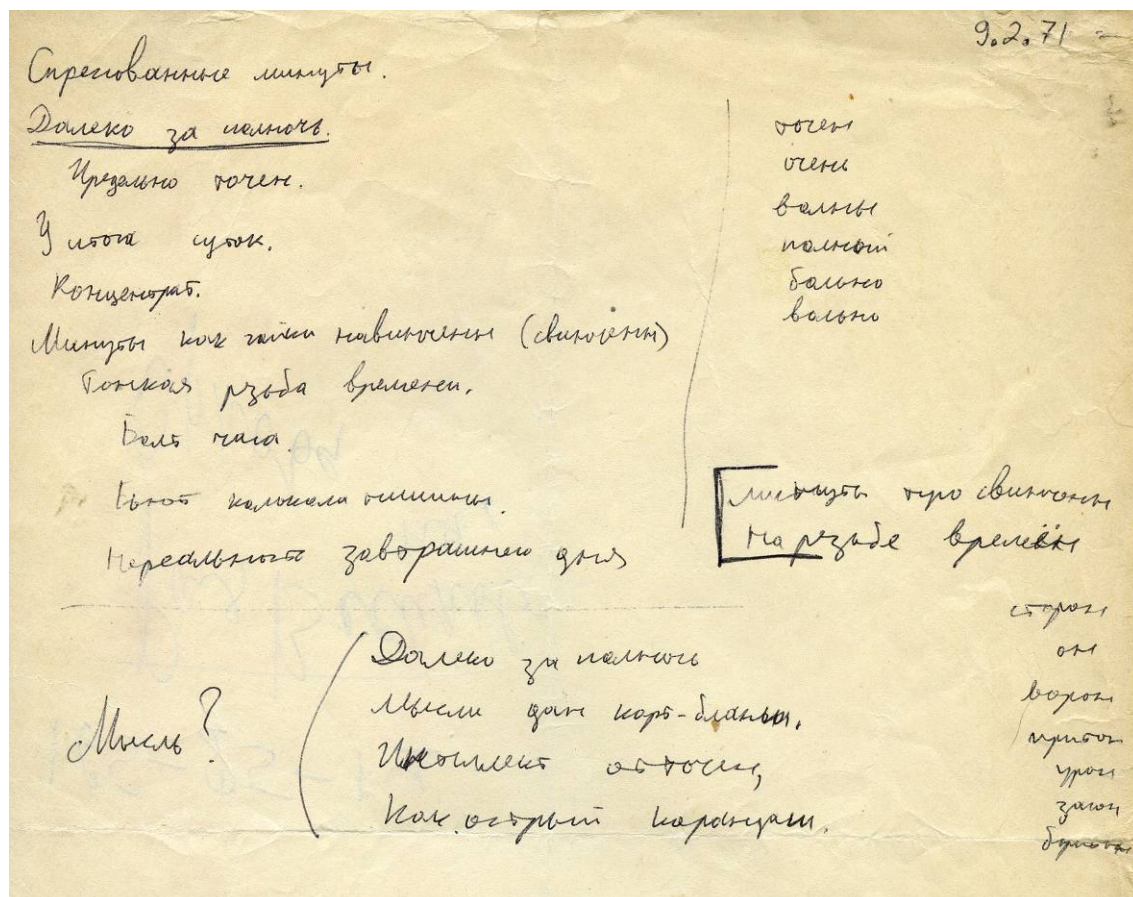 9.2.71
Спресованные минуты.
Далеко за полночь.
Предельно точен.
У итога суток.
Концентрат.
Минуты как гайки навинчены (свинчены)
Тонкая рзьба времени.
Болт часа.
Бьют колокола тишины.
Нереальность завтрашнего дня
точен
очень
волны
полной
больно
вольно
минуты про свинчены
На резьбе времён
Мысль?
Далеко за полночь
Мысли дан карт-бланш,
Интеллект отточен,
Как острый карандаш.
сторон
он
ворон
притон
урон
загон